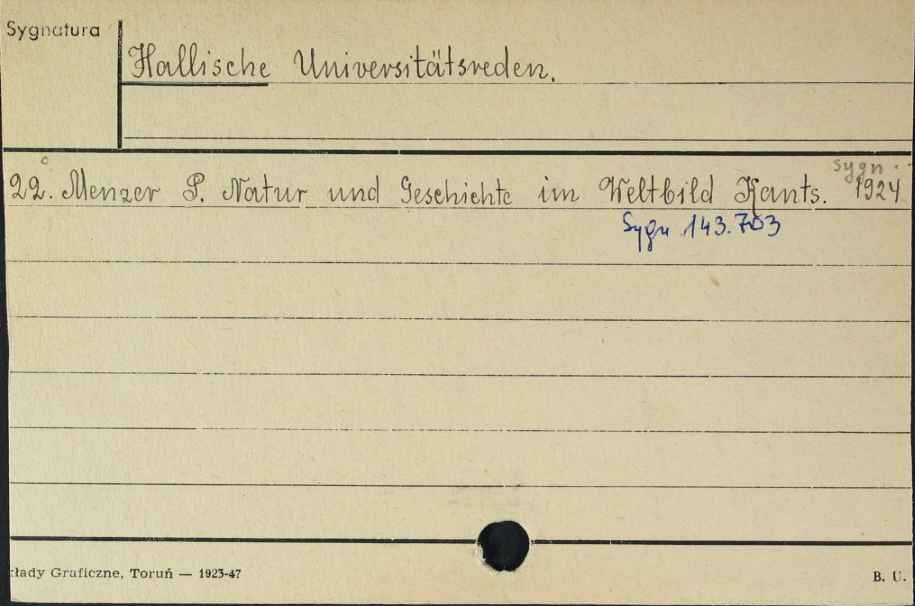 Sygnatura
Hallische Universitätsreden.
sygn.
22. Menzer P. Natur und Geschichte im Weltbild Kants. 1924
Sygn 143.703
kłady Graficzne, Toruń — 1923-47
B. U.